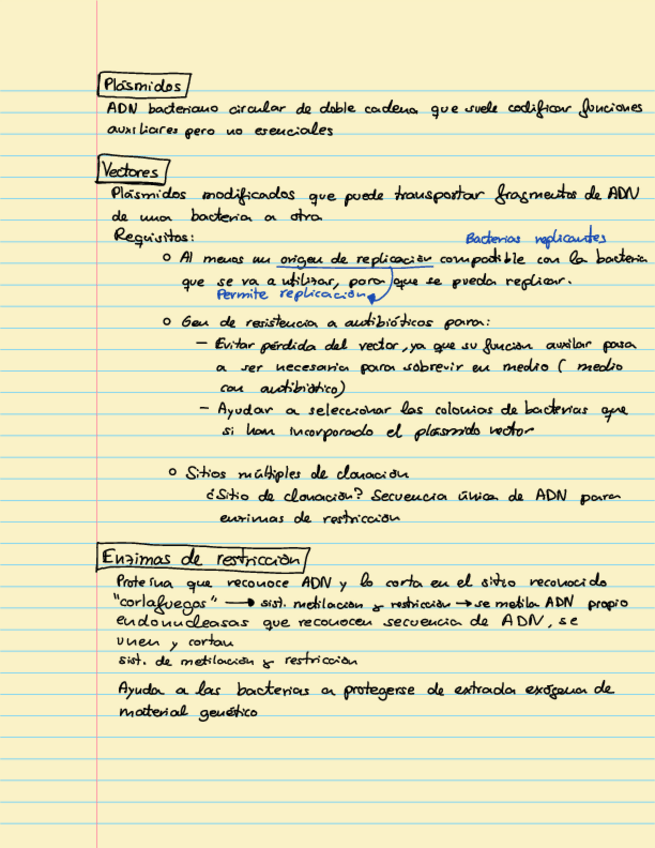 Plásmidos
ADN bacteriano circular de doble cadena que suele codificar funciones
auxiliares pero no esenciales
Vectores
Plásmidos modificados que puede transportar fragmentos de ADN
de una bacteria a otra
Requisitos:
Bacterias replicantes
o Al menos un origen de replicación compatible con la bacteria
que se va a utilizar, para que se pueda replicar.
Permite replicación
o Gen de resistencia a antibióticos para:
- Evitar pérdida del vector, ya que su función auxilar pasa
a ser necesaria para sobrevir en medio ( medio
con antibiótico)
- Ayudar a seleccionar las colonias de bacterias que
si han incorporado el plásmido vector
o Sitios múltiples de clonación
¿Sitio de clonación? Secuencia única de ADN para
enzimas de restricción
Enzimas de restricción
Proteína que reconoce ADN y lo corta en el sitio reconocido
"cortafuegos" → sist. metilación y restricción → se metila ADN propio
endonucleasas que reconocen secuencia de ADN, se
unen y cortan
sist. de metilación y restricción
Ayuda a las bacterias a protegerse de extrada exógena de
material genético